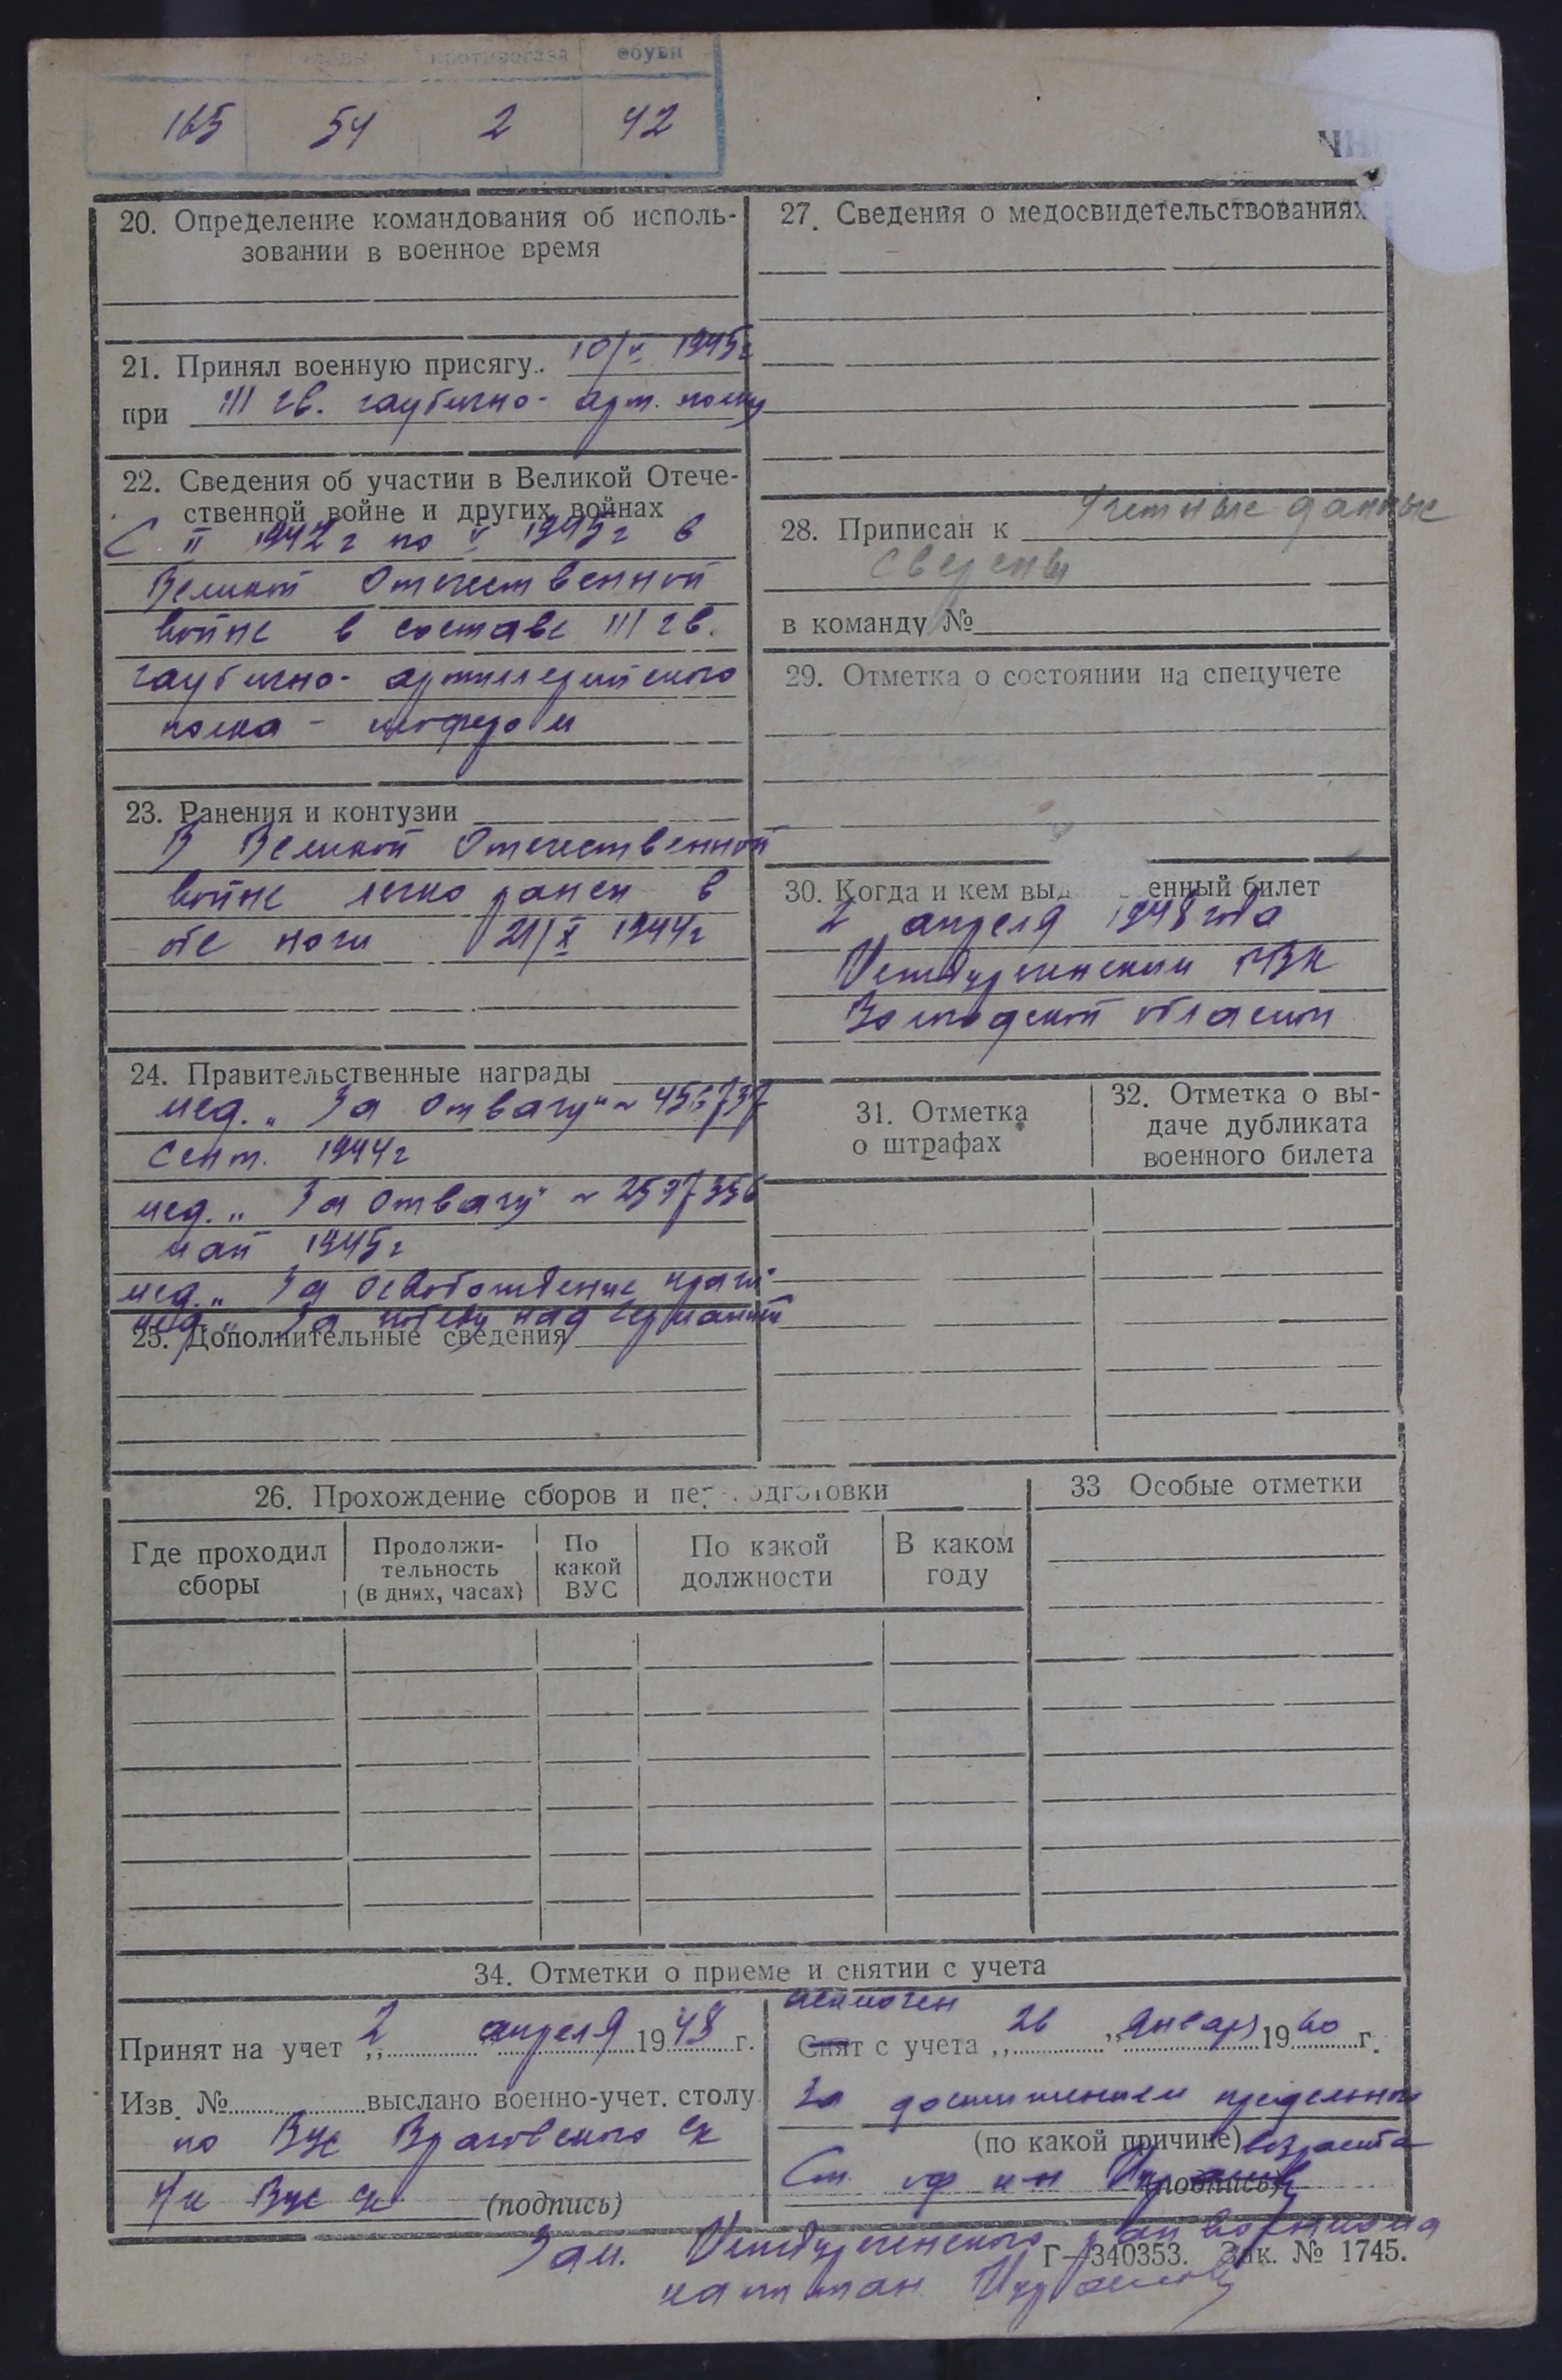 противогаза обуви
165 54 2 42
20. Определение командования об исполь-
зовании в военное время
21. Принял военную присягу.. 10/V 1945г
при 111 гв. гаубично- арт. полку
22. Сведения об участии в Великой Отече-
ственной войне и других войнах
С II 1942 г по V 1945г в
Великой Отечественной
войне в составе 111 гв.
гаубично- артиллерийского
полка - шофером
23. Ранения и контузии
В Великой Отечественной
войне легко ранен в
обе ноги 21/X 1944г
24. Правительственные награды
мед. „За отвагу" № 456737
сент. 1944г
мед. „За отвагу" № 2597356
май 1945г
мед. „За освобождение Праги"
мед. „За победу над Германией
25. Дополнительные сведения
27. Сведения о медосвидетельствованиях
28. Приписан к Учетные данные
сверены
в команду №
29. Отметка о состоянии на спецучете
30. Когда и кем выд енный билет
2 апреля 1948 года
Усть-Кубинским РВК
Вологодской области
31. Отметка
о штрафах
32. Отметка о вы-
даче дубликата
военного билета
26. Прохождение сборов и пер подготовки
33 Особые отметки
Где проходил
сборы
Продолжи-
тельность
(в днях, часах)
По
какой
ВУС
По какой
должности
В каком
году
34. Отметки о приеме и снятии с учета
Принят на учет „2" апреля 1948 г.
Изв. № выслано военно-учет. столу
по ВУС
ВУС (подпись)
исключен
Снят с учета „26" января 1960 г.
За достижением предельного
(по какой причине) возраста
Ст. оф (подпись)
Зам. райвоенкома
Г—340353. Зак. № 1745.
капитан